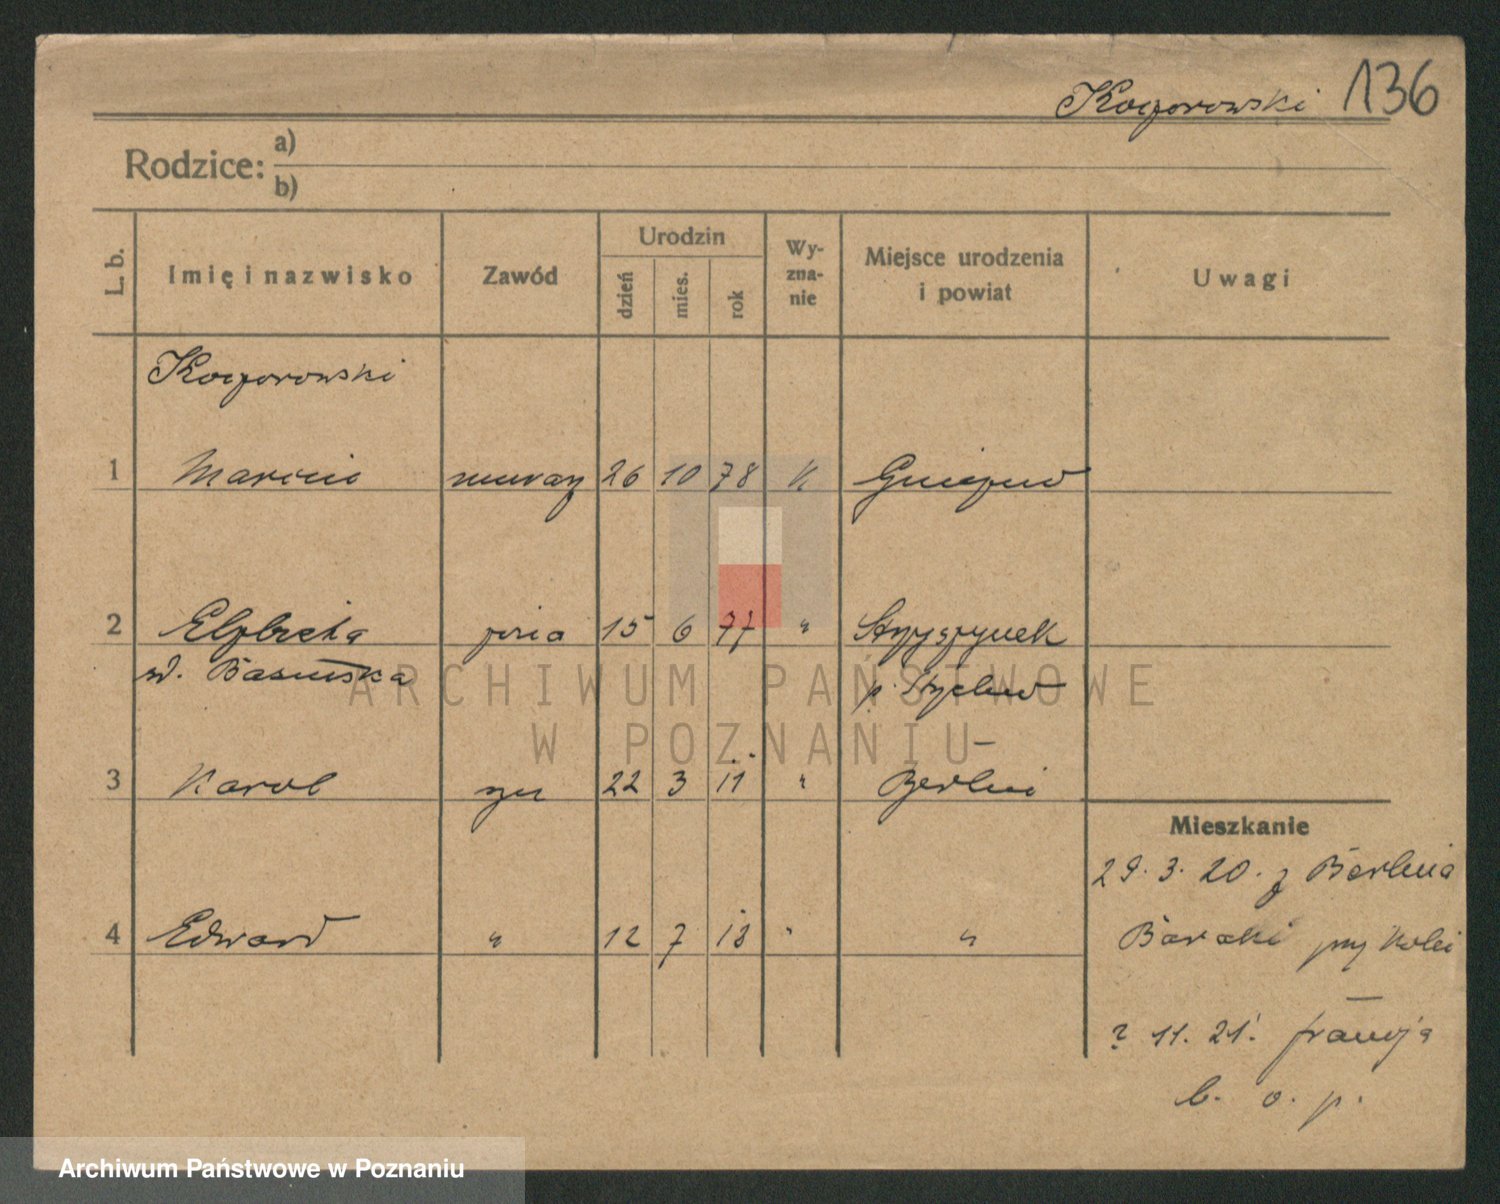 Koczorowski 136
Rodzice: a)
b)
L. b. Imię i nazwisko Zawód Urodzin dzień mies. rok Wyznanie Miejsce urodzenia i powiat Uwagi
Koczorowski
1 Marcin murarz 26 10 78 K Gniezno
2 Elżbieta żona 15 6 77 "
d. Basińska
3 Karol syn 22 3 11 " Berlin
4 Edward " 12 7 13 " "
Mieszkanie
29. 3. 20. z Berlina
Baraki przy Kolei
? 11. 21. Francja
b. o. p.
ARCHIWUM PAŃSTWOWE
W POZNANIU
Archiwum Państwowe w Poznaniu